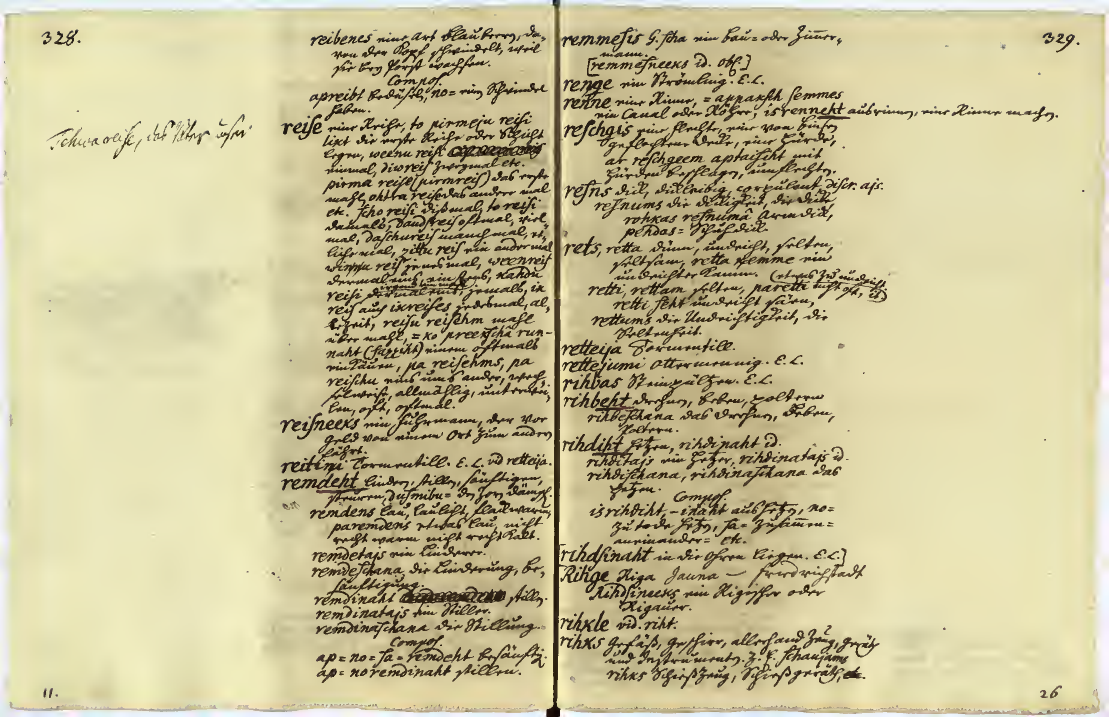 328.
reibenes eine art Blaubeeren, da-
von der Kopf schwindelt, weil
sie bey Porst wachsen.
Compos.
apreibt bedüseln, no= ein Schwindel
haben.
reise eine Reihe, to pirmeju reisi
likt die erste Reihe oder Schicht
legen, weenu reis
einmal, diwreis zweymal etc.
pirma reise (pirmreis) das erste
mahl, ohtra reise das andere mal
etc. scho reisi dißmal, to reisi
damals, daudsreis oftmal, viel-
mal, daschureis manch mal, et-
liche mal, zittu reis ein ander mal
winnu reis jenes mal, weenreis
dermal eins, kahdu
reisi jemals, ik
reis auch ikreises jedesmal, al-
lezeit, reisu reisehm mahl
über mahl, = ko preekscha run-
naht einem oftmals
einkäuen, pa reisehms, pa
reischu eins ums ander, wech-
selweise, allmählig, unterwei-
len, oft, oftmal.
reisneeks ein Fuhrmann, der vor
Geld von einem Ort zum andern
fährt.
reitini Tormentill. E. L. vid retteija.
remdeht lindern, stillen, sänftigen,
steuren, dusmibu= den Zorn dämpf.
remdens lau, laulicht, flaulwarm,
paremdens etwas lau, nicht
recht warm nicht recht kalt.
remdetajs ein Linderer.
remdeschana die Linderung, be-
sänftigung.
remdinaht stillen.
remdinatajs ein Stiller.
remdinaschana die Stillung.
Compos.
ap= no= sa= remdeht besänftig.
ap= no remdinaht stillen.
11.
329.
remmesis G. scha ein bau= oder Zimmer-
mann.
[remmesneeks id. obs.]
renge ein Strömling. E. L.
renne eine Rinne, = appaksch semmes
ein Canal oder Röhre, isrenneht ausrinnen, eine Rinne machen.
reschgis eine flechte, eine von binsen
geflochtene Decke, eine Hürde,
ar reschgeem aptaisiht mit
Hürden beschlagen, umflechten.
resns dick, dickleibig, corpulent,
resnums die dickigkeit, die dicke
rohkas resnumâ Arm dick,
pehdas= Schuh dick.
rets, retta dünn, undicht, selten,
seltsam, retta kemme ein
undichter Kamm.
retti, rettam selten,
retti seht undicht säen,
rettums die Undichtigkeit, die
Seltenheit.
retteija Tormentill.
rettejumi Ottermennig. E. L.
rihbas Steinpiltzen. E. L.
rihbeht dröhnen, beben, poltern
rihbeschana das dröhnen, beben,
Poltern.
rihdiht hetzen, rihdinaht id.
rihditajs ein Hetzer, rihdinatajs id.
rihdischana, rihdinaschana das
hetzen.
Compos.
isrihdiht, -inaht aushetzen, no=
zu tode hetzen, sa= zusammen=
aneinander= etc.
[rihdsinaht in die Ohren liegen. E. L.]
Rihge Riga Jauna — Friedrichstadt
Rihdsineeks ein Rigischer oder
Rigauer.
rihkle vid. riht.
rihks Gefäß, Geschirr, allerhand Zeug, geräth
und Instrumenten, z. E. schaujams
rihks Schießzeug, Schießgeräth, etc.
26